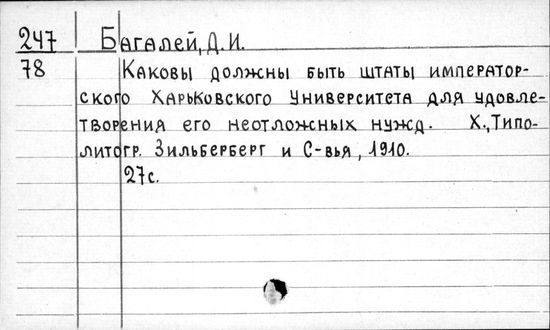 247 Багалей, Д. И.
78 Каковы должны быть штаты император-
ского Харьковского Университета для удовле-
творения его неотложных нужд. Х., Типо-
литогр. Зильберберг и С-вья, 1910.
27с.